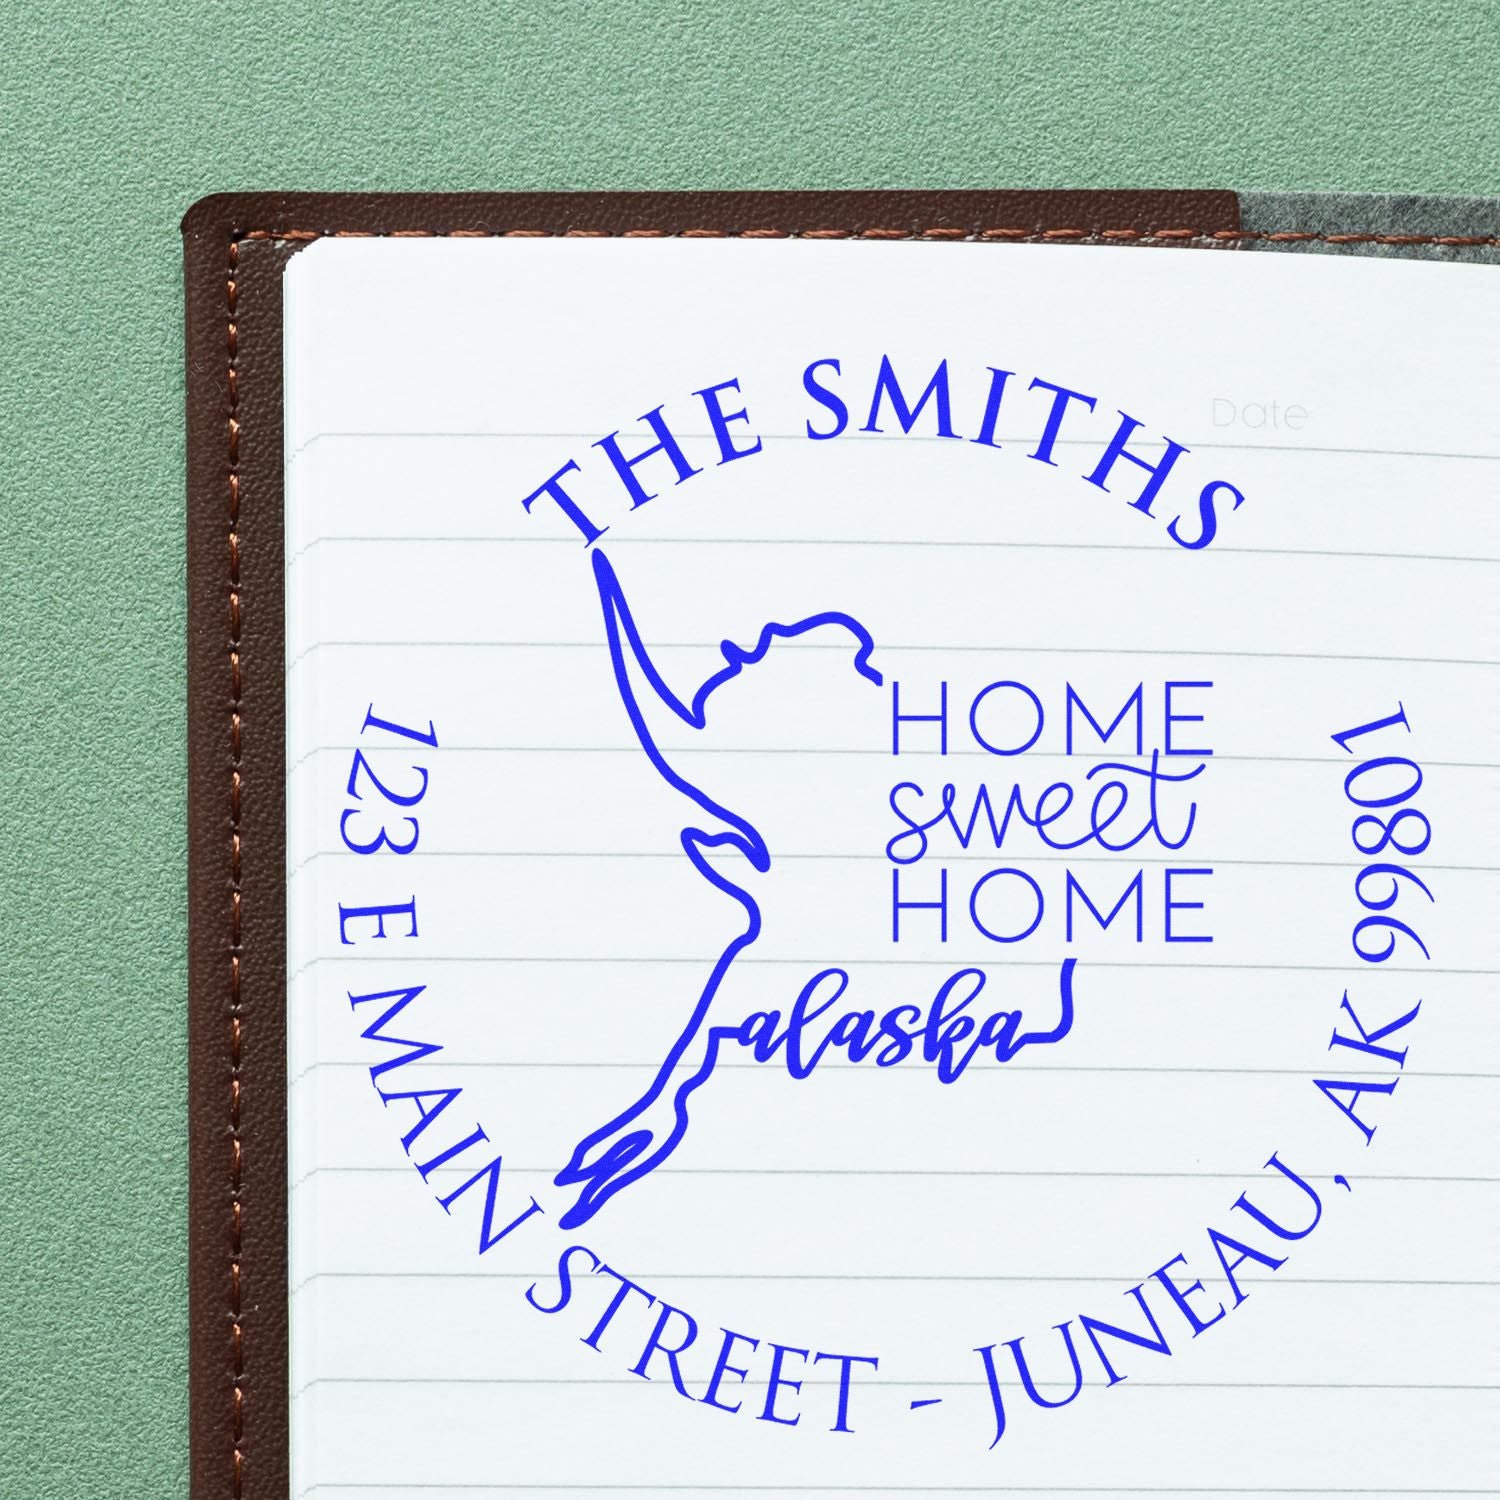 Date
THE SMITHS
HOME
sweet
HOME
alaska
123 E MAIN STREET - JUNEAU, AK 99801